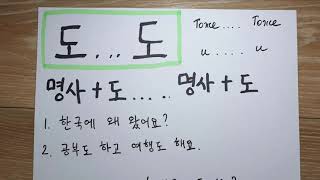 도 ... 도
Тоже .... Тоже
и ..... и
명사 + 도 ..... 명사 + 도
1. 한국에 왜 왔어요?
2. 공부도 하고 여행도 해요.